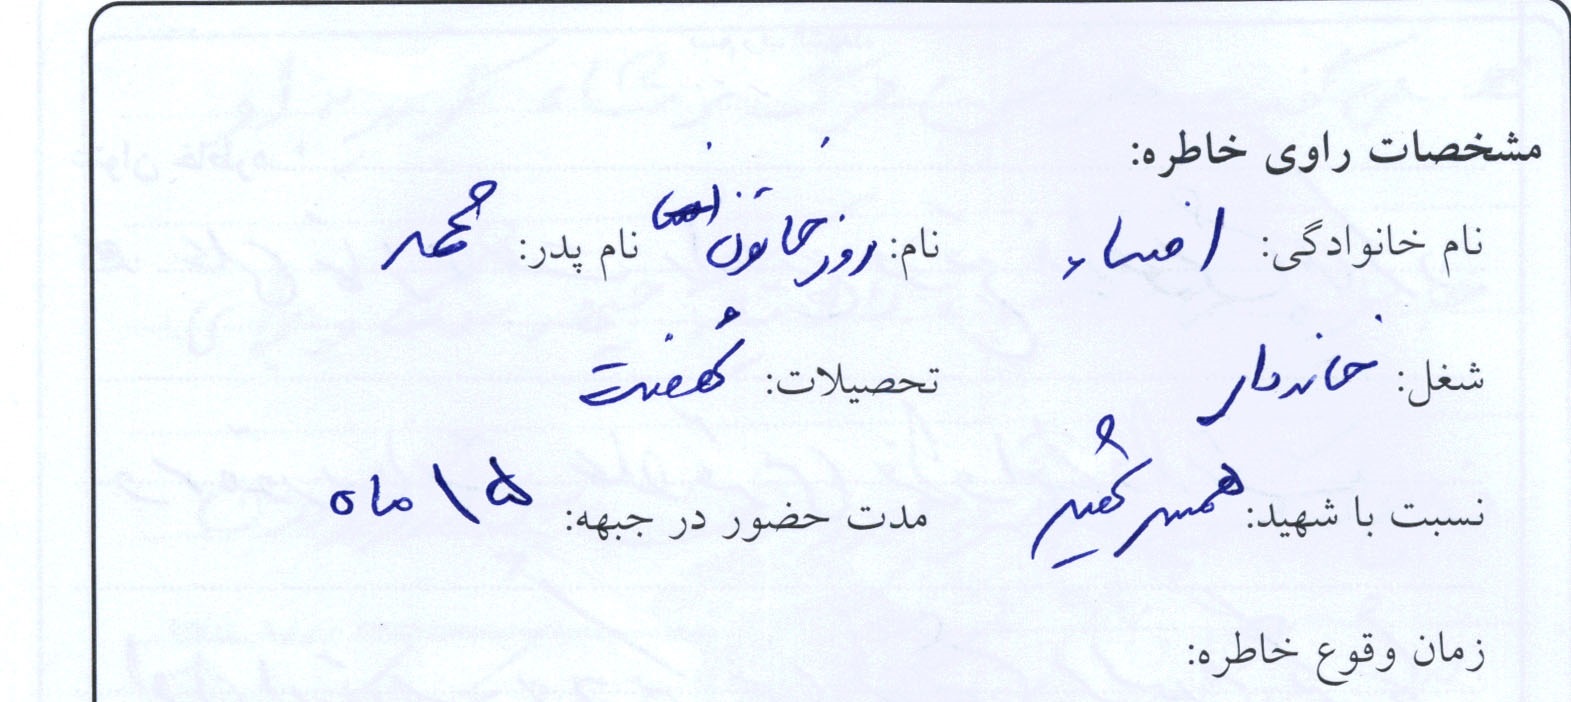 مشخصات راوی خاطره:
نام خانوادگی: افساء نام: روز خاتون نام پدر: محمد
شغل: خانه‌دار تحصیلات: نهضت
نسبت با شهید: همسر شهید مدت حضور در جبهه: ۱۵ ماه
زمان وقوع خاطره: